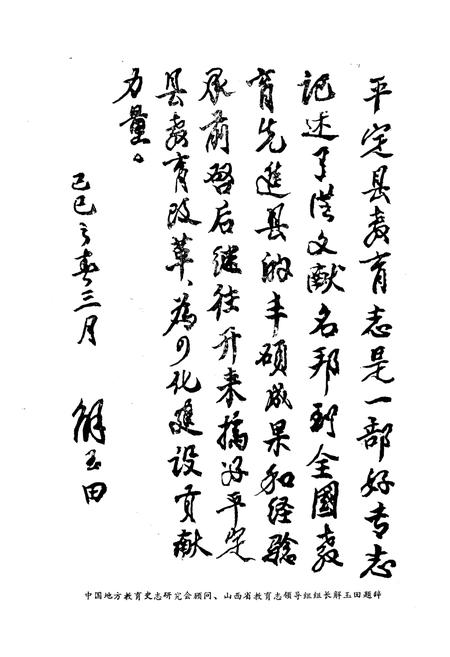 平定县教育志是一部好专志
记述了從文献名邦到全國教
育先進县的丰硕成果和经验
承前啓后继往开来搞好平定
县教育改革、為四化建設贡献
力量。
己巳之春三月
解玉田
中国地方教育史志研究会顾问、山西省教育志领导组组长解玉田题辞